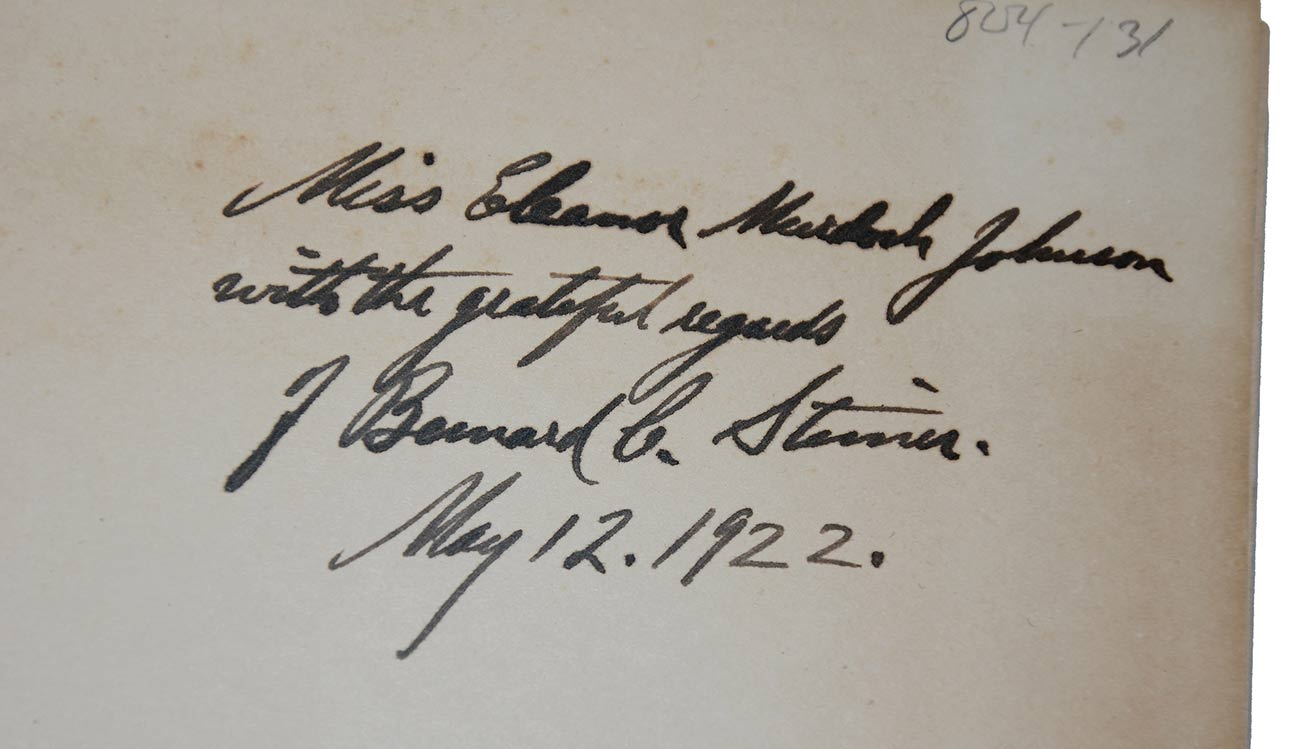 824-131
Miss Eleanor Murdoch Johnson
with the grateful regards
of Bernard C. Steiner.
May 12. 1922.